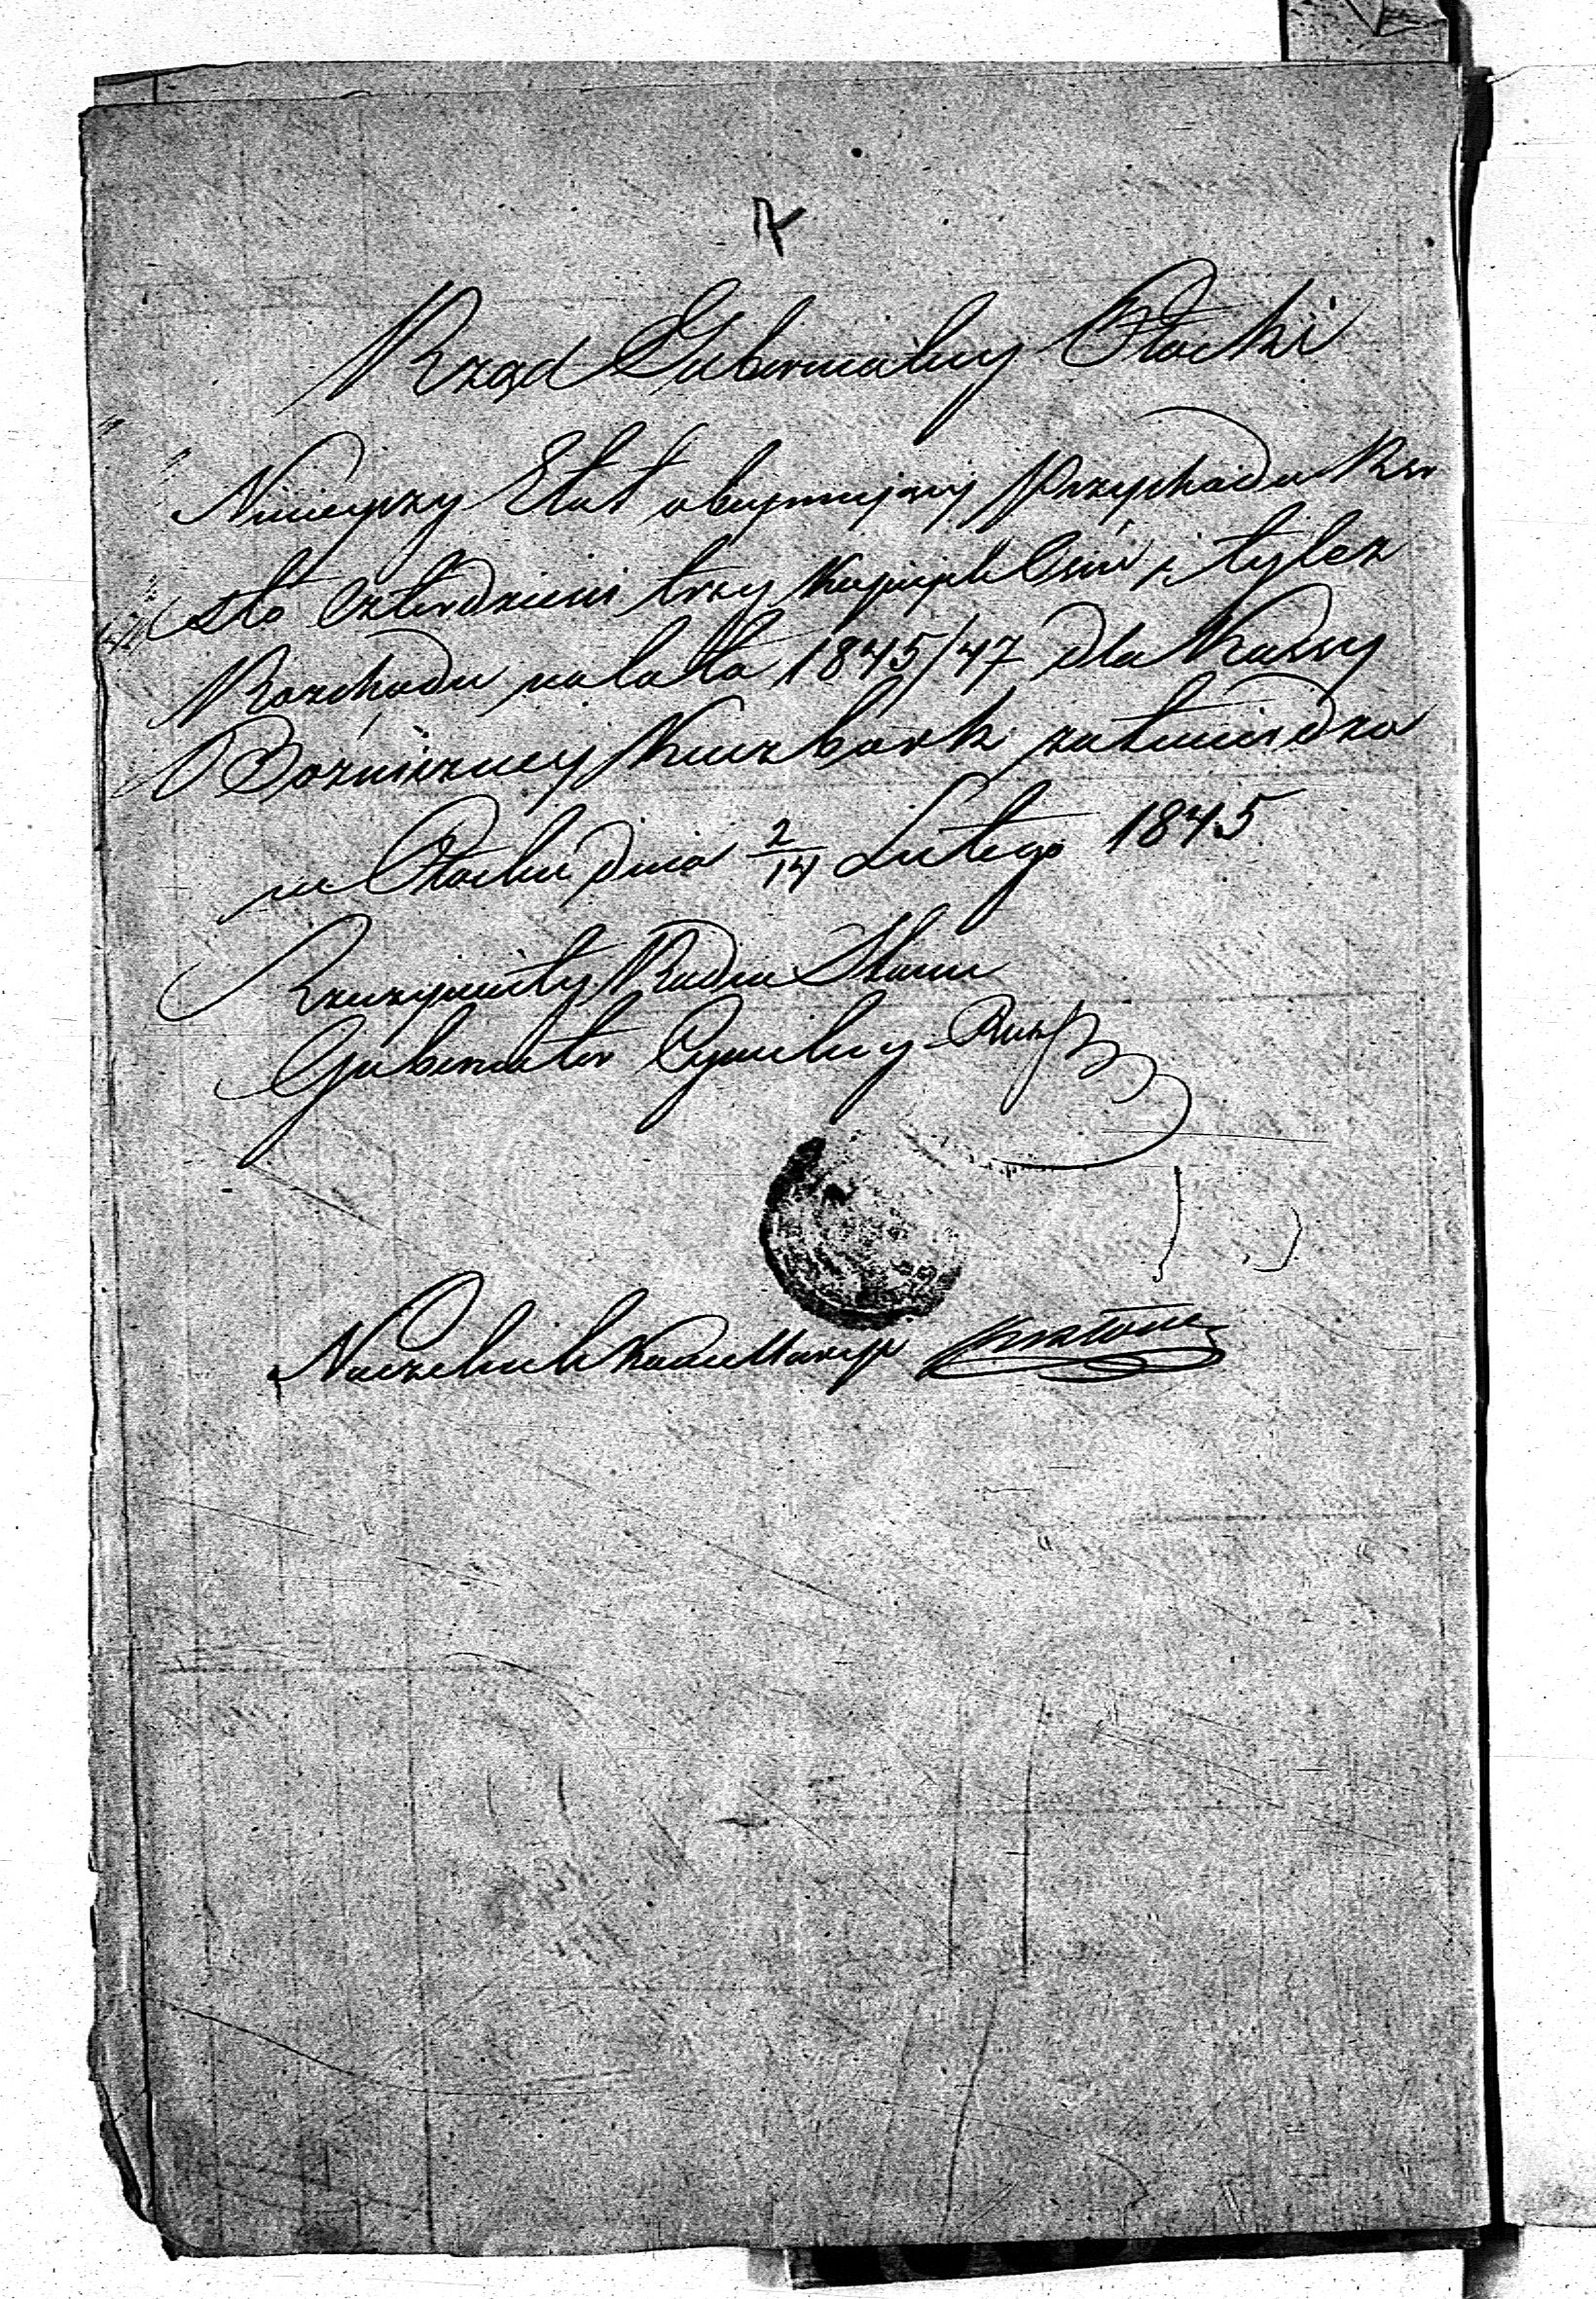 Rząd Gubernialny Płocki
Ninieyszy Etat obeymujący Przychodu Rsr
sto czterdzieści trzy kopiejek ośm i tyleż
Rozchodu na lata 1845/47 dla Kassy
Bożniczney Kuczbork zatwierdza
w Płocku dnia 2/14 Lutego 1845
Rzeczywisty Radca Stanu
Gubernator Cywilny
Naczelnik Kancellaryi